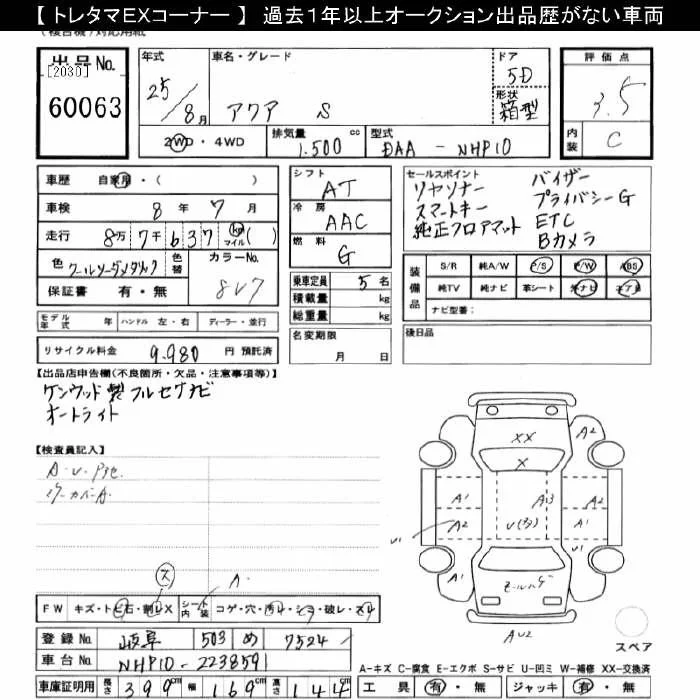 【 トレタマEXコーナー 】 過去1年以上オークション出品歴がない車両
出品No.
[2030]
60063
年式
25/8月
車名・グレード
アクア S
ドア
5D
形状
箱型
2WD・4WD
排気量
1.500 cc
型式
DAA - NHP10
評価点
3.5
内装
C
車歴 自家用・( )
車検 8年 7月
走行 8万7千637 km マイル( )
色
クールソーダメタリック
色替
カラーNo.
8V7
保証書 有・無
シフト
AT
冷房
AAC
燃料
G
乗車定員 5名
積載量 kg
総重量 kg
セールスポイント
リヤソナー バイザー
スマートキー プライバシーG
純正フロアマット ETC
Bカメラ
装備品
S/R 純A/W P/S P/W ABS
純TV 純ナビ 革シート 外ナビ エアB
ナビ型番:
モデル年式 年 ハンドル 左・右 ディーラー・並行
リサイクル料金 9.980 円 預託済
名変期限
月 日
後日品
【出品店申告欄(不良箇所・欠品・注意事項等)】
ケンウッド製フルセグナビ
オートライト
【検査員記入】
A
FW キズ・トビ石・割レX
シート内装 コゲ・穴・汚レ・シミ・破レ・スレ
登録No. 岐阜 503 め 7524
車台No. NHP10-2238591
車庫証明用 長さ 399cm 幅 169cm 高さ 144cm
工具 有・無 ジャッキ 有・無
XX
X
A2
A1
A2
U1
A13
A2
A1
A1
A2
スペア
A-キズ C-腐食 E-エクボ S-サビ U-凹ミ W-補修 XX-交換済